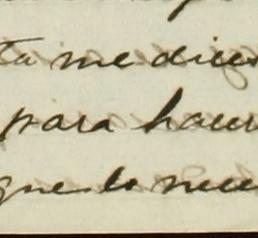 ta me dices
para hacer
que lo nece